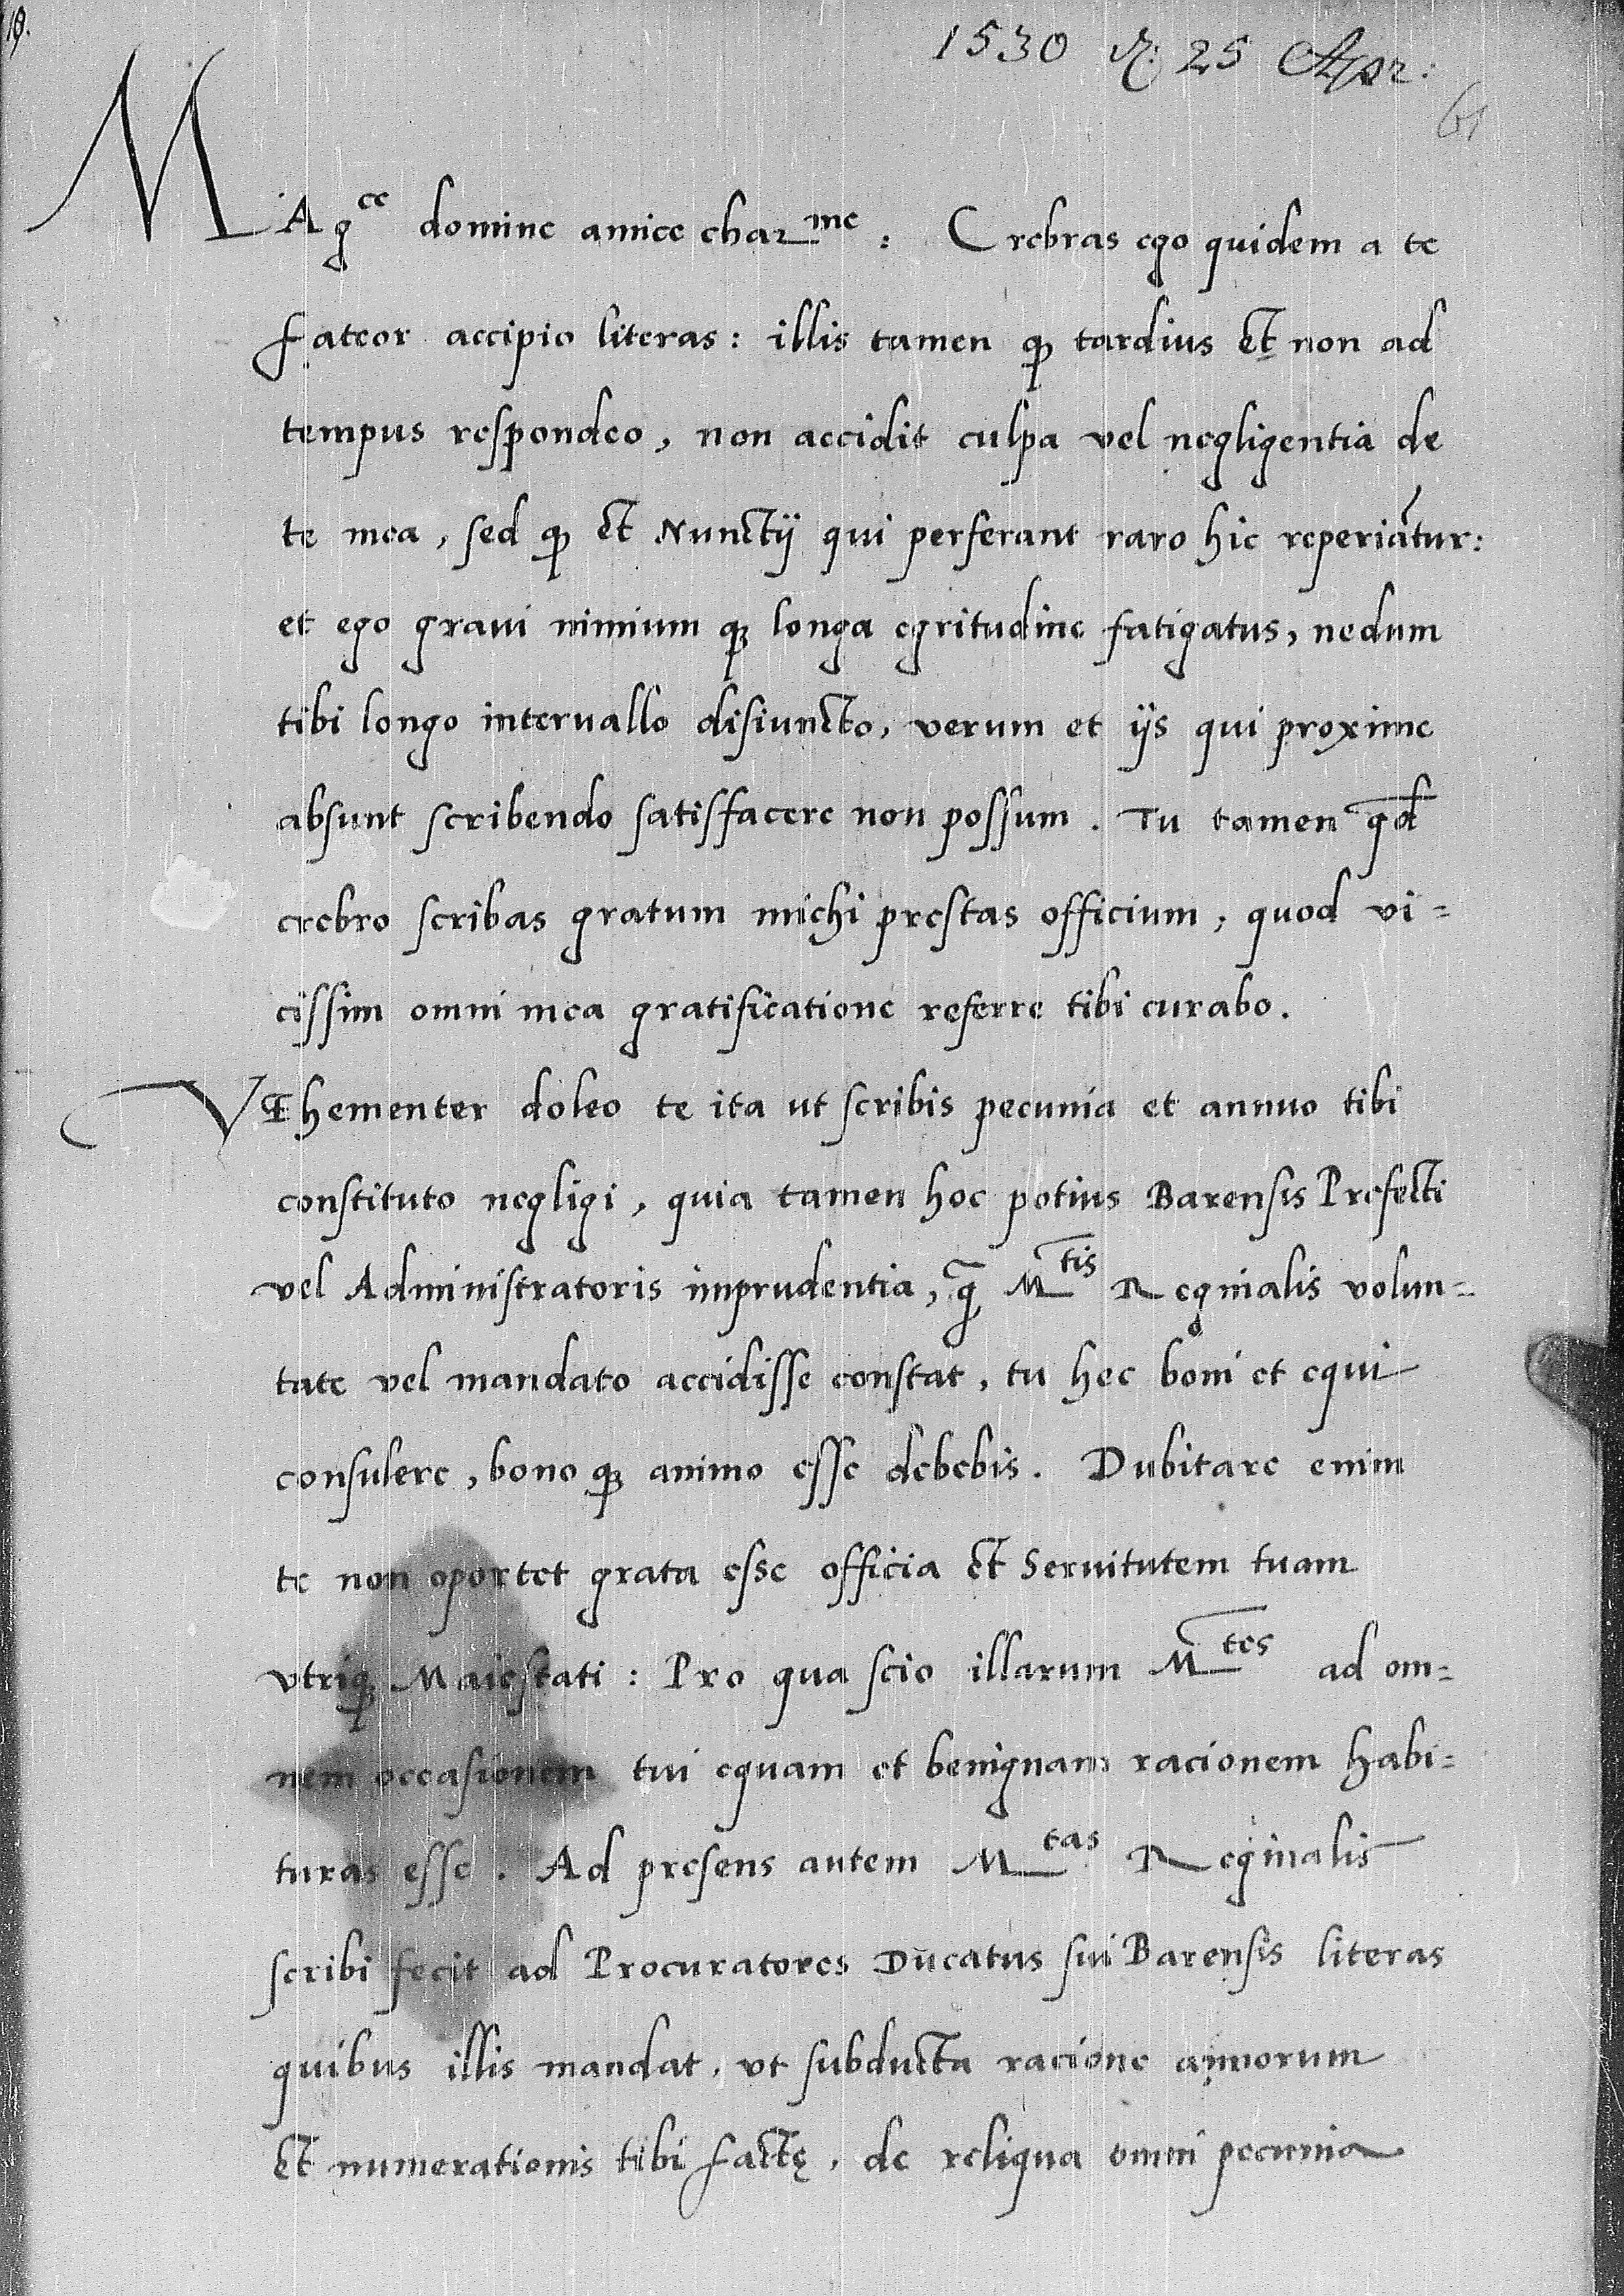 19.
1530 d: 25 Apr:
61
MAgce domine amice charme : Crebras ego quidem a te
fateor accipio literas : illis tamen qp tardius et non ad
tempus respondeo, non accidit culpa vel negligentia de
te mea, sed qp et Nunctij qui perferant raro hic reperiãtur:
et ego graui nimium qꝫ longa egritudine fatigatus, nedum
tibi longo interuallo disiuncto, verum et ijs qui proxime
absunt scribendo satisfacere non possum. Tu tamen qd̄
crebro scribas gratum michi prestas officium, quod vi=
cissim omni mea gratificatione referre tibi curabo.
VEhementer doleo te ita ut scribis pecunia et annuo tibi
constituto negligi, quia tamen hoc potius Barensis Prefecti
vel Administratoris imprudentia, q̃ Mtis Reginalis volun=
tate vel mandato accidisse constat, tu hec boni et equi
consulere, bono qꝫ animo esse debebis. Dubitare enim
te non oportet grata esse officia et Seruitutem tuam
vtriqꝫ Maiestati : Pro qua scio illarum Mtes ad om=
nem occasionem tui equam et benignam racionem habi=
turas esse. Ad presens autem Mtas Reginalis
scribi fecit ad Procuratores Ducatus sui Barensis literas
quibus illis mandat, vt subducta racione annorum
et numerationis tibi factę, de reliqua omni pecunia